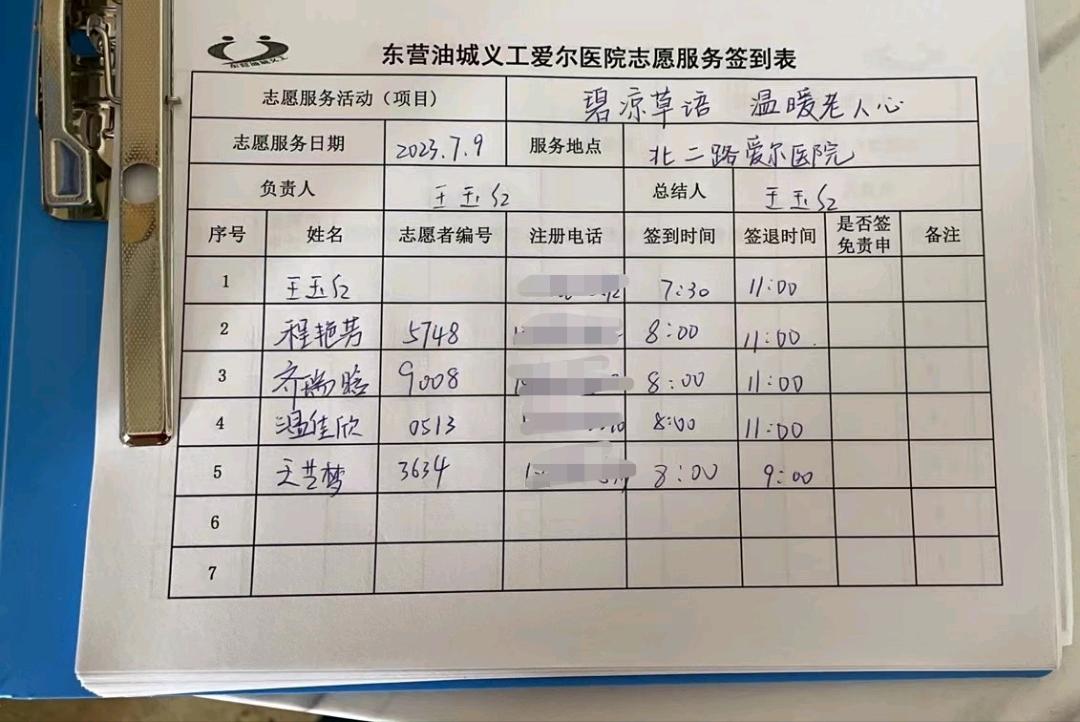 东营油城义工
东营油城义工爱尔医院志愿服务签到表
志愿服务活动（项目） 碧凉草语 温暖老人心
志愿服务日期 2023.7.9 服务地点 北二路爱尔医院
负责人 王玉红 总结人 王玉红
序号 姓名 志愿者编号 注册电话 签到时间 签退时间 是否签免责申 备注
1 王玉红 7:30 11:00
2 程艳芳 5748 8:00 11:00.
3 齐瑞晗 9008 8:00 11:00
4 温佳欣 0513 8:00 11:00
5 芝梦 3634 8:00 9:00
6
7